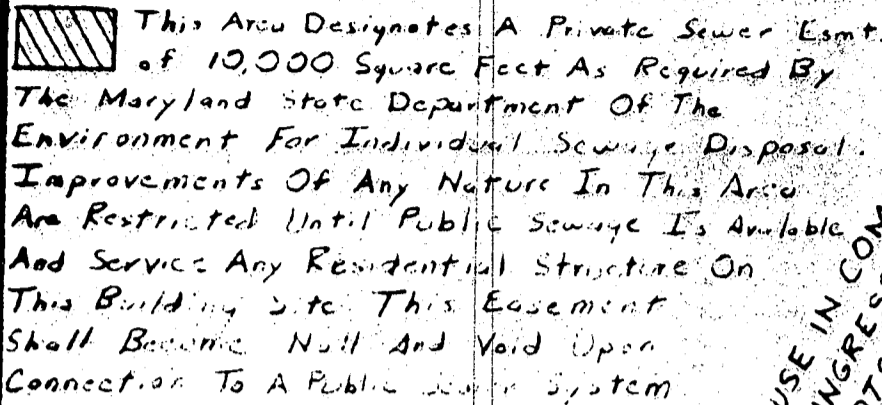 This Area Designates A Private Sewer Esmt.
of 10,000 Square Feet As Required By
The Maryland State Department Of The
Environment For Individual Sewage Disposal.
Improvements Of Any Nature In This Area
Are Restricted Until Public Sewage Is Available
And Service Any Residential Structure On
This Building Site This Easement
Shall Become Null And Void Upon
Connection To A Public Sewer System
USE IN COM
NGRES